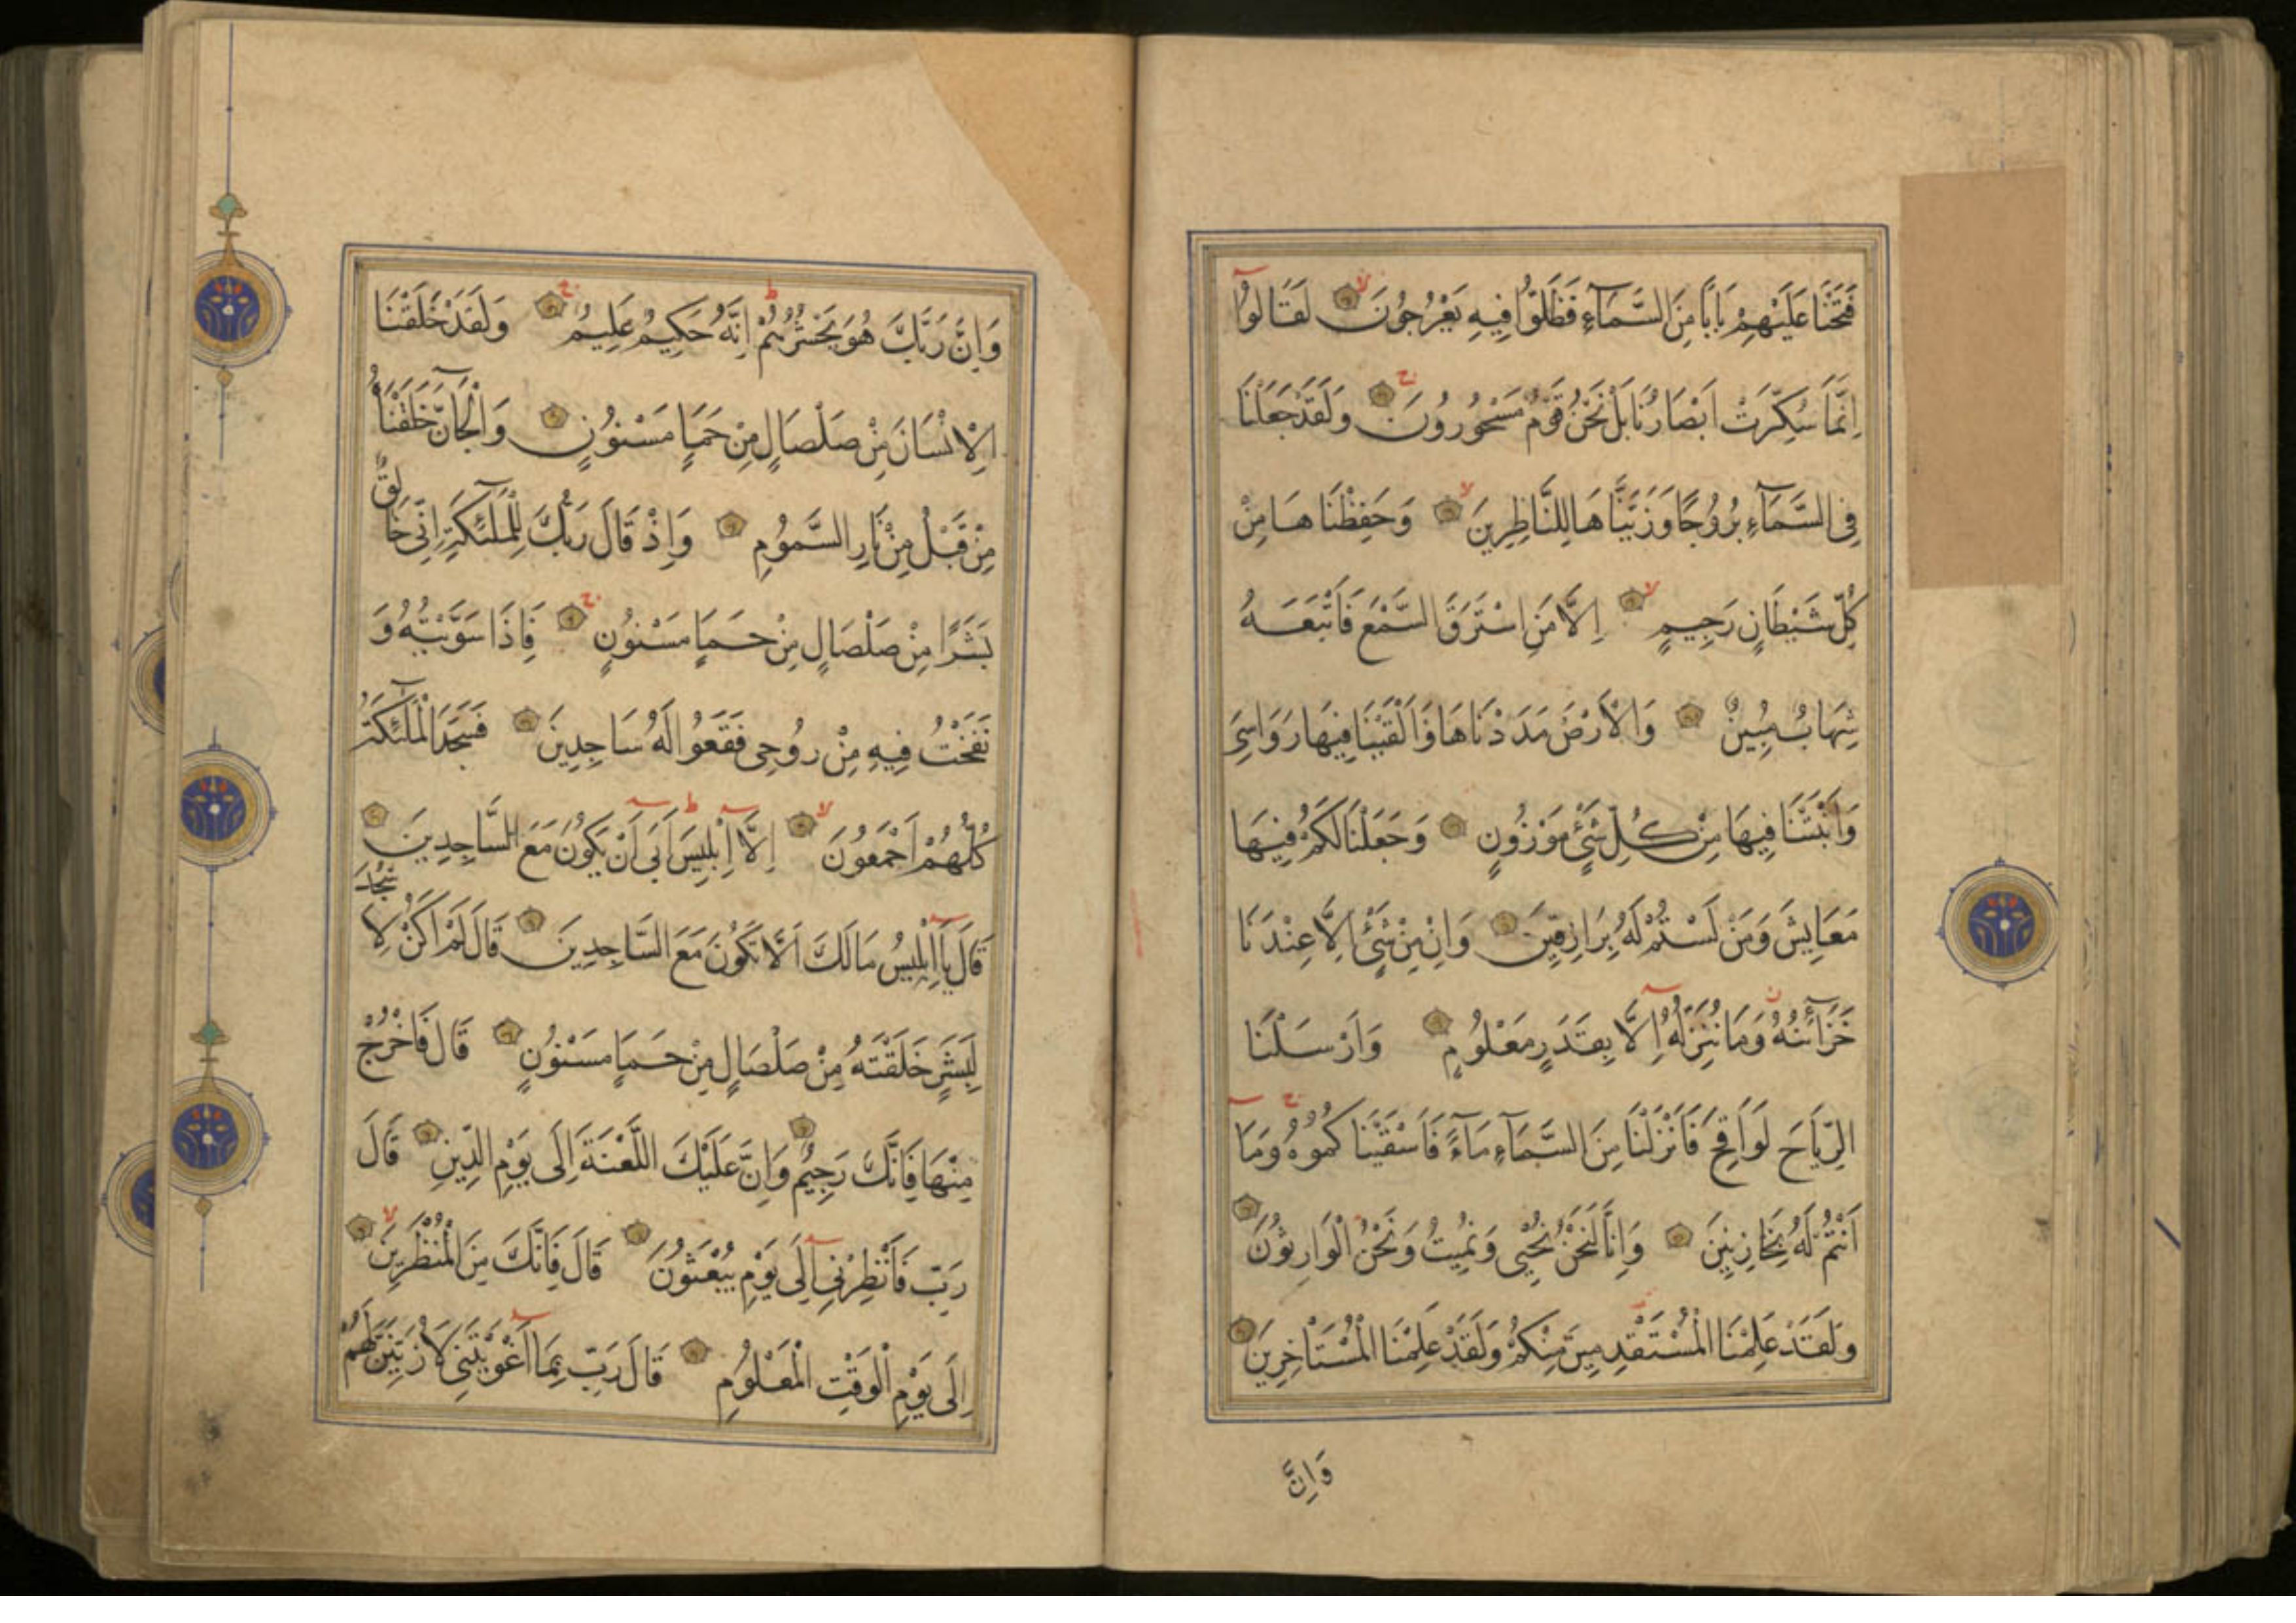 فَتَحْنَا عَلَيْهِمْ بَابًا مِنَ السَّمَآءِ فَظَلُّوا فِيهِ يَعْرُجُونَ لَقَالُوا
اِنَّمَا سُكِّرَتْ اَبْصَارُنَا بَلْ نَحْنُ قَوْمٌ مَسْحُورُونَ وَلَقَدْ جَعَلْنَا
فِى السَّمَآءِ بُرُوجًا وَزَيَّنَّاهَا لِلنَّاظِرِينَ وَحَفِظْنَاهَا مِنْ
كُلِّ شَيْطَانٍ رَجِيمٍ اِلَّا مَنِ اسْتَرَقَ السَّمْعَ فَاَتْبَعَهُ
شِهَابٌ مُبِينٌ وَالْاَرْضَ مَدَدْنَاهَا وَاَلْقَيْنَا فِيهَا رَوَاسِىَ
وَاَنْبَتْنَا فِيهَا مِنْ كُلِّ شَىْءٍ مَوْزُونٍ وَجَعَلْنَا لَكُمْ فِيهَا
مَعَايِشَ وَمَنْ لَسْتُمْ لَهُ بِرَازِقِينَ وَاِنْ مِنْ شَىْءٍ اِلَّا عِنْدَنَا
خَزَآئِنُهُ وَمَا نُنَزِّلُهُ اِلَّا بِقَدَرٍ مَعْلُومٍ وَاَرْسَلْنَا
الرِّيَاحَ لَوَاقِحَ فَاَنْزَلْنَا مِنَ السَّمَآءِ مَآءً فَاَسْقَيْنَاكُمُوهُ وَمَا
اَنْتُمْ لَهُ بِخَازِنِينَ وَاِنَّا لَنَحْنُ نُحْيِى وَنُمِيتُ وَنَحْنُ الْوَارِثُونَ
وَلَقَدْ عَلِمْنَا الْمُسْتَقْدِمِينَ مِنْكُمْ وَلَقَدْ عَلِمْنَا الْمُسْتَاْخِرِينَ
وَاِنَّ
وَاِنَّ رَبَّكَ هُوَ يَحْشُرُهُمْ اِنَّهُ حَكِيمٌ عَلِيمٌ وَلَقَدْ خَلَقْنَا
الْاِنْسَانَ مِنْ صَلْصَالٍ مِنْ حَمَاٍ مَسْنُونٍ وَالْجَآنَّ خَلَقْنَاهُ
مِنْ قَبْلُ مِنْ نَارِ السَّمُومِ وَاِذْ قَالَ رَبُّكَ لِلْمَلٰٓئِكَةِ اِنِّى خَالِقٌ
بَشَرًا مِنْ صَلْصَالٍ مِنْ حَمَاٍ مَسْنُونٍ فَاِذَا سَوَّيْتُهُ وَ
نَفَخْتُ فِيهِ مِنْ رُوحِى فَقَعُوا لَهُ سَاجِدِينَ فَسَجَدَ الْمَلٰٓئِكَةُ
كُلُّهُمْ اَجْمَعُونَ اِلَّا اِبْلِيسَ اَبَى اَنْ يَكُونَ مَعَ السَّاجِدِينَ
قَالَ يَا اِبْلِيسُ مَا لَكَ اَلَّا تَكُونَ مَعَ السَّاجِدِينَ قَالَ لَمْ اَكُنْ لِاَسْجُدَ
لِبَشَرٍ خَلَقْتَهُ مِنْ صَلْصَالٍ مِنْ حَمَاٍ مَسْنُونٍ قَالَ فَاخْرُجْ
مِنْهَا فَاِنَّكَ رَجِيمٌ وَاِنَّ عَلَيْكَ اللَّعْنَةَ اِلَى يَوْمِ الدِّينِ قَالَ
رَبِّ فَاَنْظِرْنِى اِلَى يَوْمِ يُبْعَثُونَ قَالَ فَاِنَّكَ مِنَ الْمُنْظَرِينَ
اِلَى يَوْمِ الْوَقْتِ الْمَعْلُومِ قَالَ رَبِّ بِمَا اَغْوَيْتَنِى لَاُزَيِّنَنَّ لَهُمْ